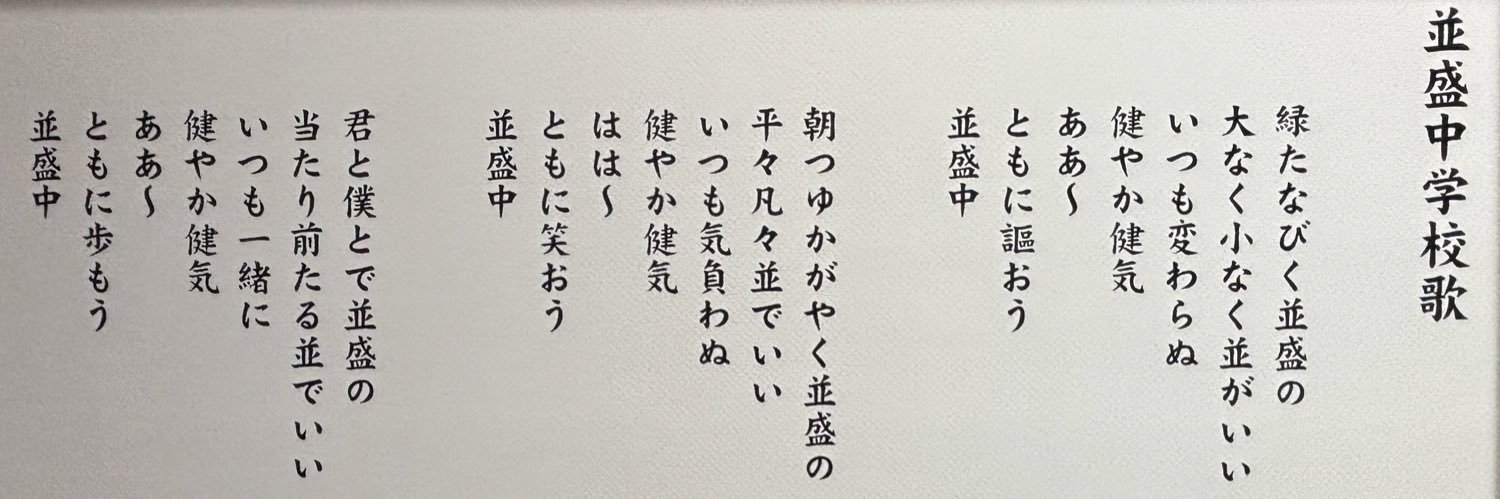 並盛中学校歌
緑たなびく並盛の
大なく小なく並がいい
いつも変わらぬ
健やか健気
ああ〜
ともに謳おう
並盛中
朝つゆかがやく並盛の
平々凡々並でいい
いつも気負わぬ
健やか健気
はは〜
ともに笑おう
並盛中
君と僕とで並盛の
当たり前たる並でいい
いつも一緒に
健やか健気
ああ〜
ともに歩もう
並盛中